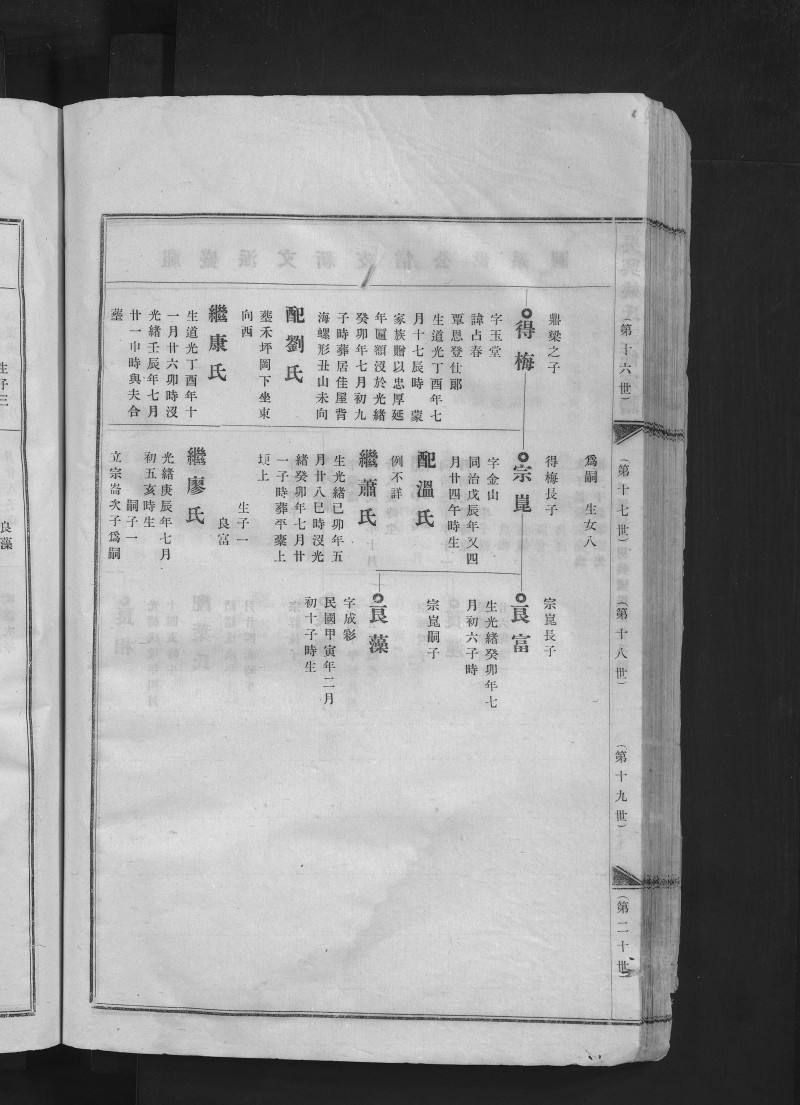 (第十六世)
(第十七世)
(第十八世)
(第十九世)
(第二十世)
鼎梁之子
得梅
字玉堂
諱占春
覃恩登仕郎
生道光丁酉年七
月十七辰時 蒙
家族贈以忠厚延
年匾額沒於光緒
癸卯年七月初九
子時葬居佳屋背
海螺形丑山未向
配劉氏
塟禾坪岡下坐東
向西
繼康氏
生道光丁酉年十
一月廿六卯時沒
光緒壬辰年七月
廿一申時與夫合
塟
為嗣 生女八
得梅長子
宗崑
字金山
同治戊辰年又四
月廿四午時生
配溫氏
例不詳
繼蕭氏
生光緒己卯年五
月廿八巳時沒光
緒癸卯年七月廿
一子時葬平棗上
埧上
生子一
良富
繼廖氏
光緒庚辰年七月
初五亥時生
嗣子一
立宗崙次子為嗣
宗崑長子
良富
生光緒癸卯年七
月初六子時
宗崑嗣子
良藻
字成彩
民國甲寅年二月
初十子時生
生子三
良藻